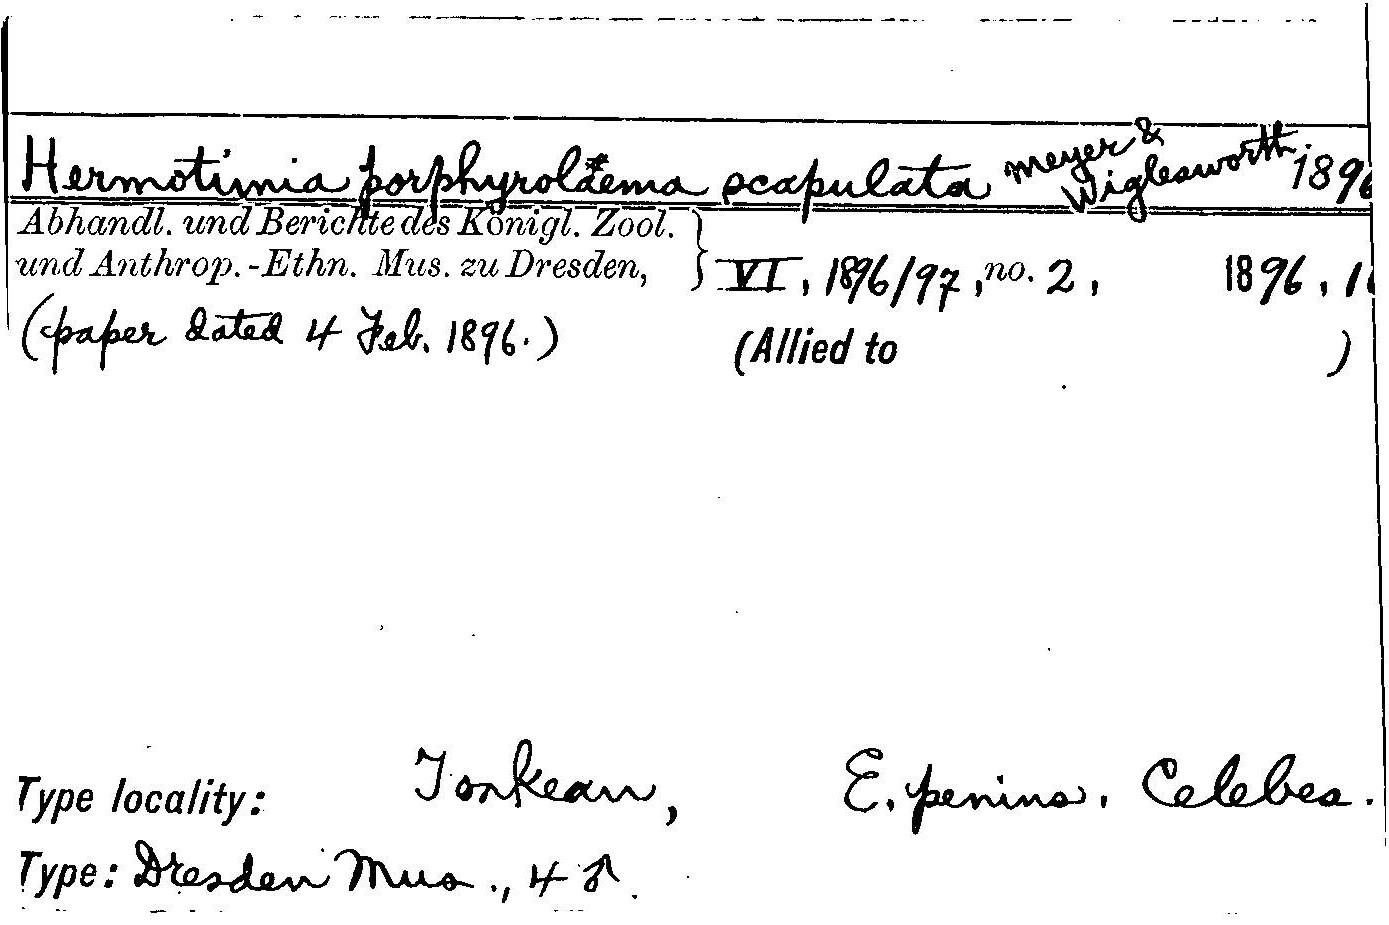 Hermotimia porphyrolaema scapulata Meyer & Wiglesworth. 1896
Abhandl. und Berichte des Königl. Zool.
und Anthrop.-Ethn. Mus. zu Dresden, } VI, 1896/97, no. 2, 1896, 1
(paper dated 4 Feb. 1896.) (Allied to )
Type locality: Tonkean, E. penins. Celebes.
Type: Dresden Mus., 4 ♂.